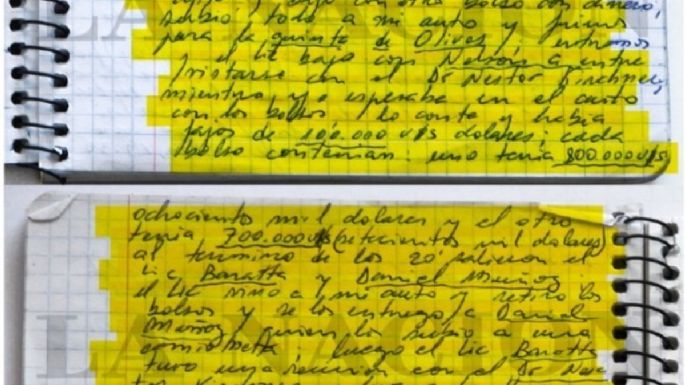 bajo con otro bolso con dinero,
subio todo a mi auto y fuimos
para la quinta de Olivos, entramos
y el Lic bajo con Nelson a entre
vistarse con el Dr Nestor Kirchner,
mientras yo esperaba en el auto
con los bolsos, lo conte y habia
fajos de 100.000 u$s dolares; cada
bolso contenian: uno tenia 800.000 u$s
ochociento mil dolares y el otro
tenia 700.000 u$s (setecientos mil dolares)
al termino de los 20' salieron el
Lic Baratta y Daniel Muñoz
el Lic vino a mi auto y retiro los
bolsos y se los entrego a Daniel
Muñoz, quien los subio a una
camioneta; luego el Lic Baratta
tuvo una reunion con el Dr Nes
LA NACION
LA NACION